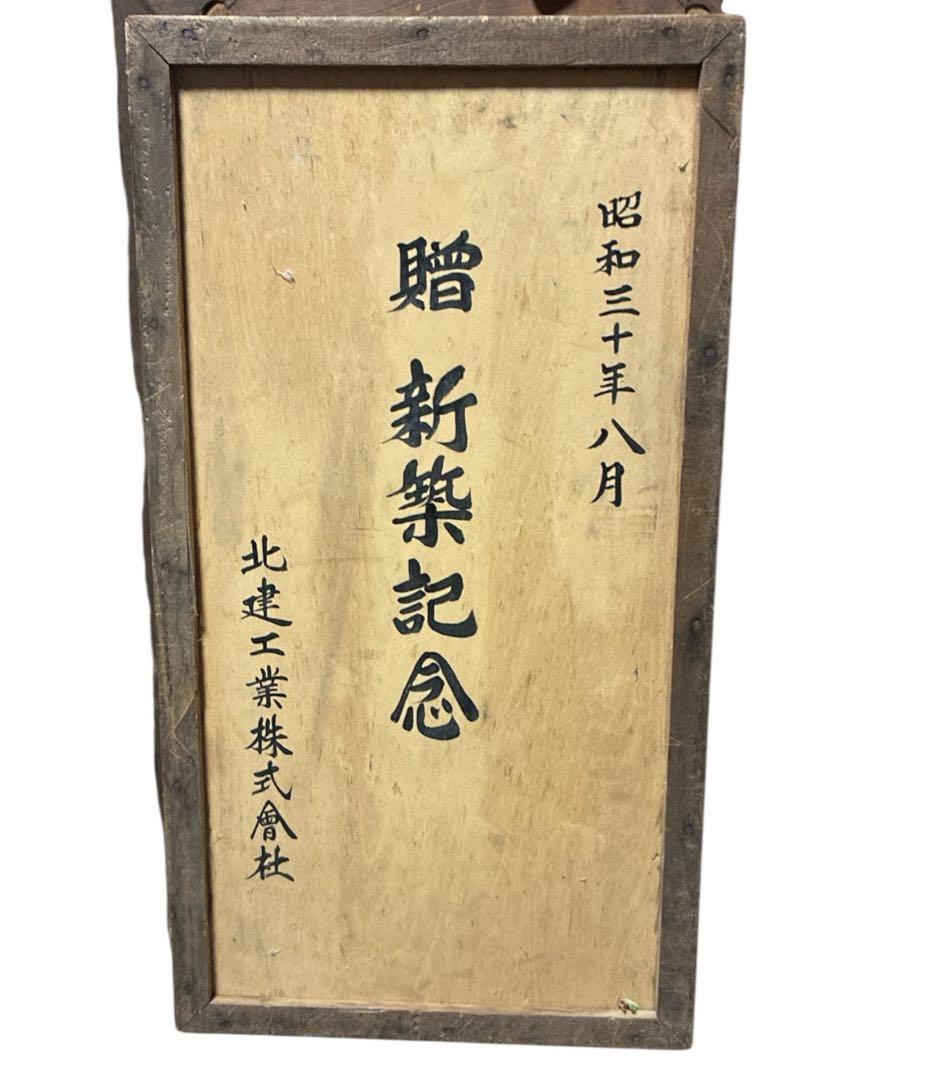 昭和三十年八月
贈 新築記念
北建工業株式會社